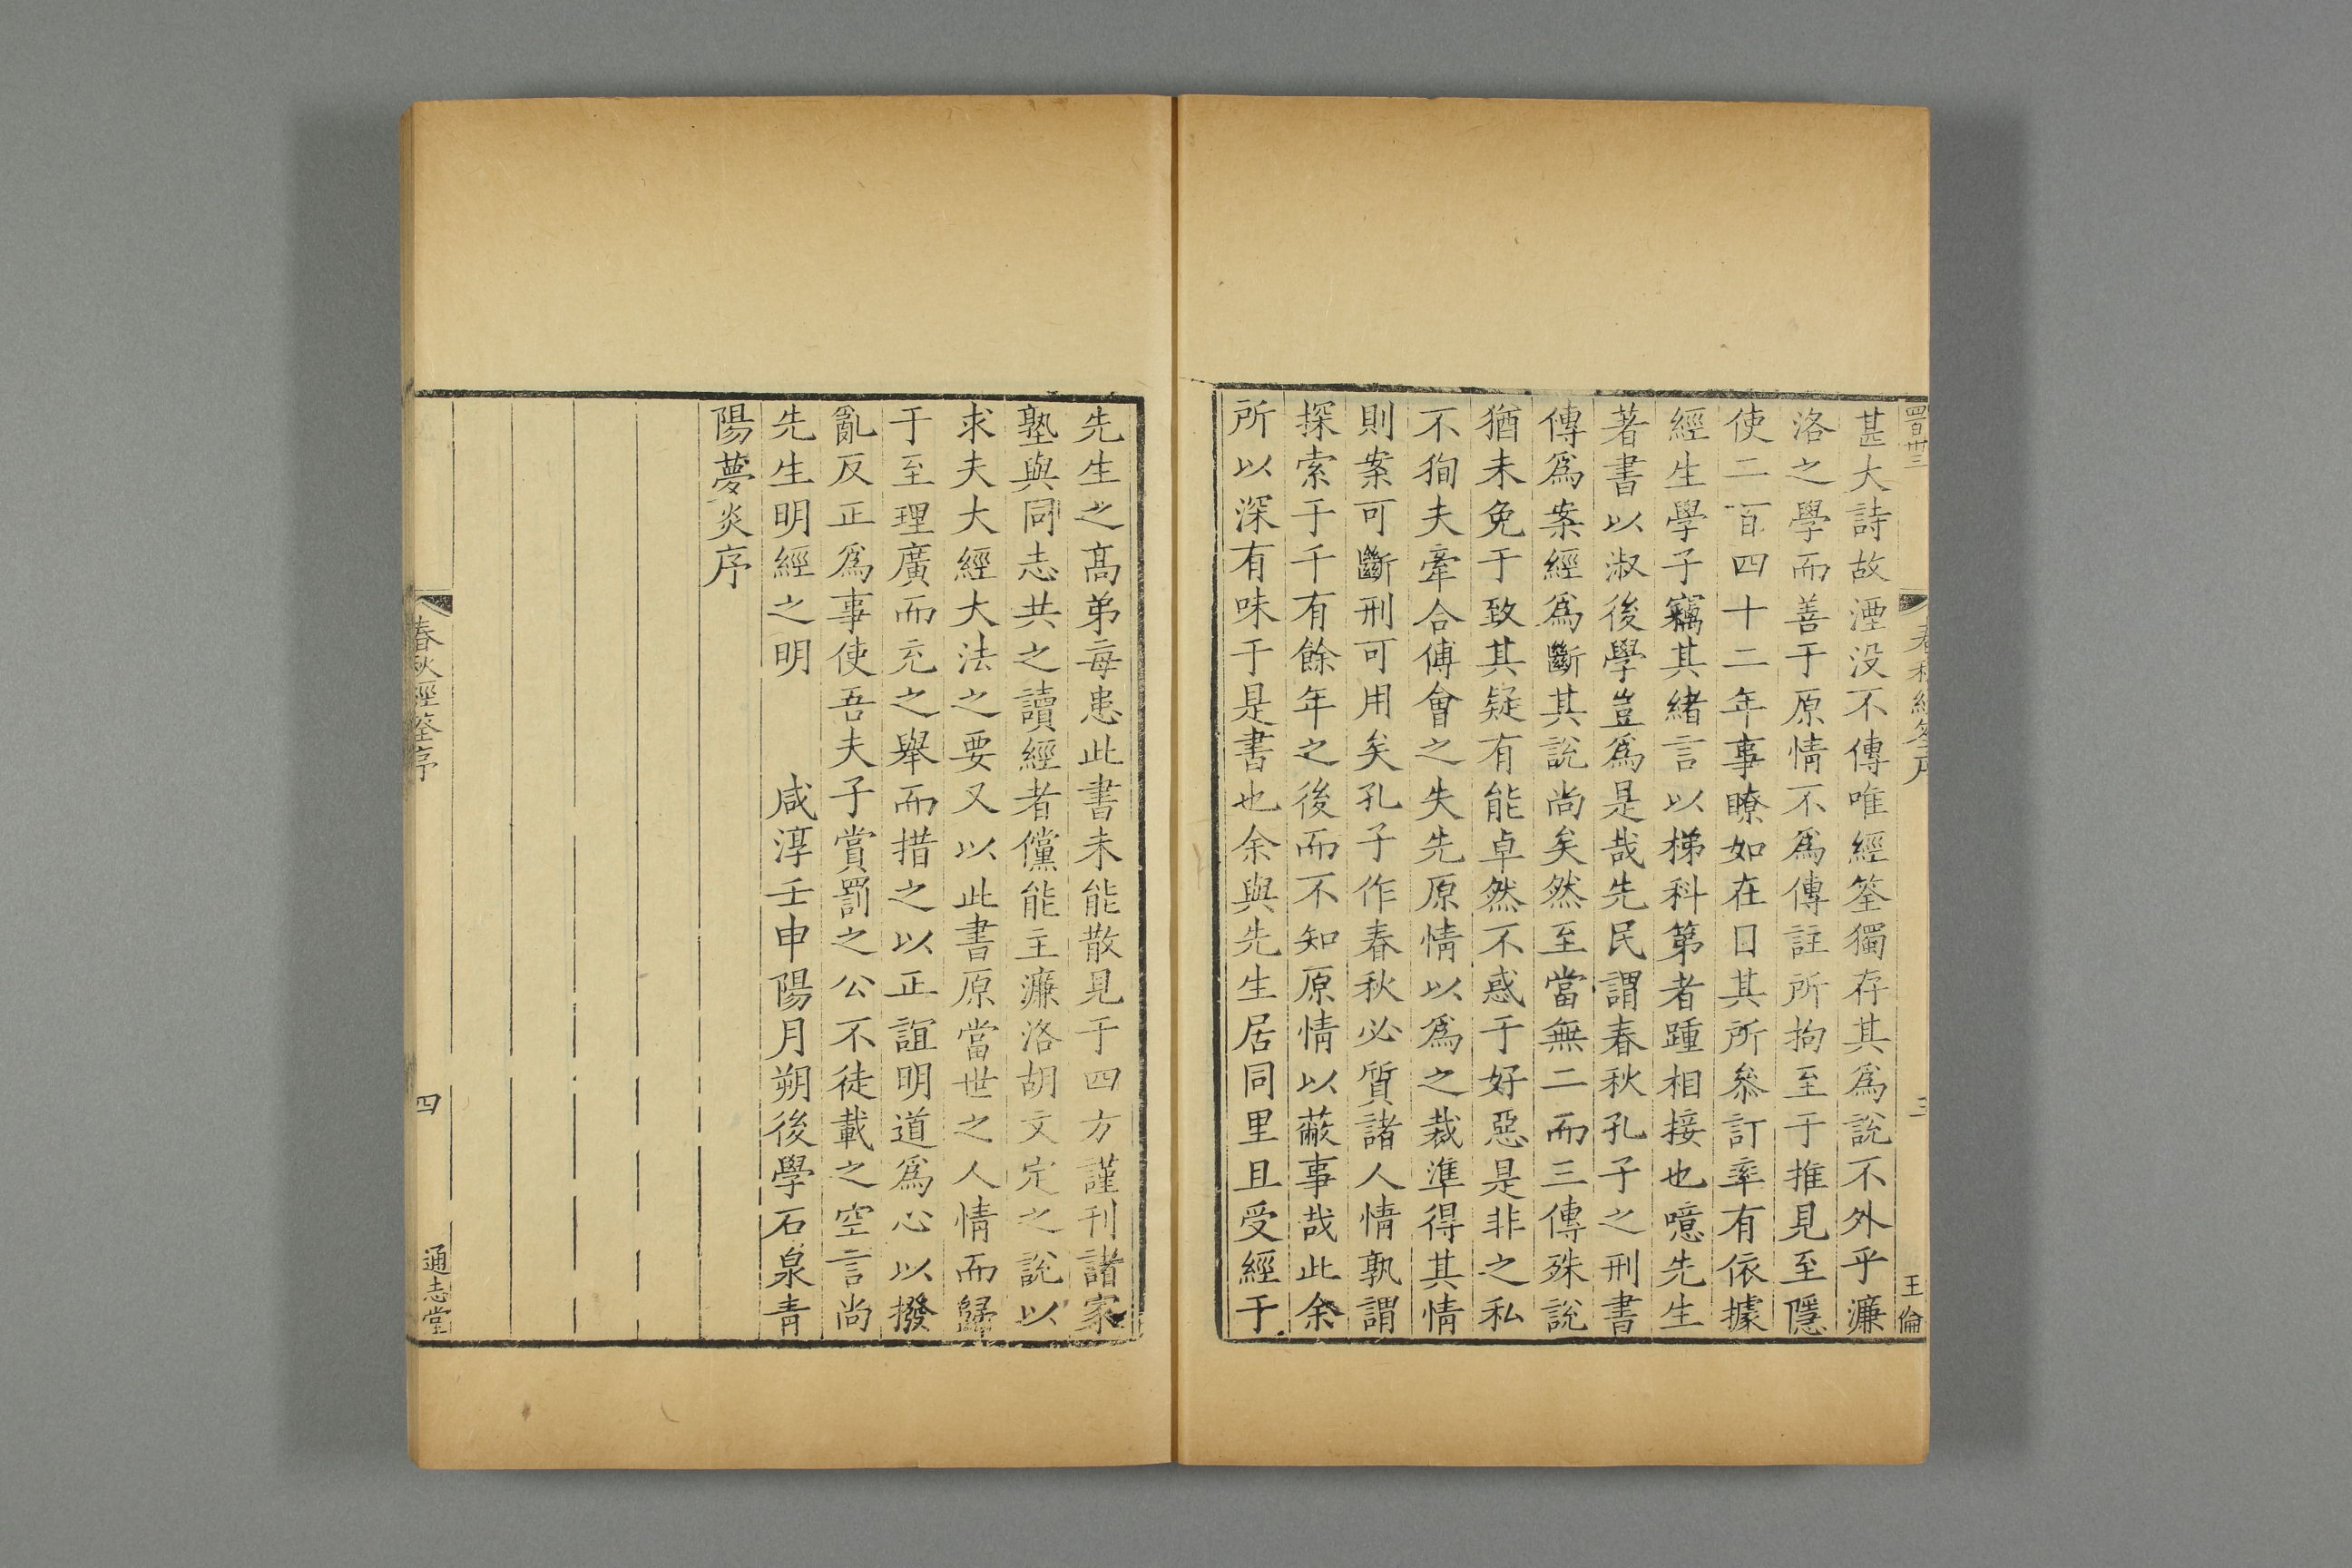 四百卅三
春秋經筌序
三
王倫
甚大詩故湮没不傳唯經筌獨存其爲說不外乎濂
洛之學而善于原情不爲傳註所拘至于推見至隱
使二百四十二年事瞭如在目其所叅訂率有依據
經生學子竊其緒言以梯科第者踵相接也噫先生
著書以淑後學豈爲是哉先民謂春秋孔子之刑書
傳爲案經爲斷其說尚矣然至當無二而三傳殊說
猶未免于致其疑有能卓然不惑于好惡是非之私
不狥夫牽合傅會之失先原情以爲之裁準得其情
則案可斷刑可用矣孔子作春秋必質諸人情孰謂
探索于千有餘年之後而不知原情以蔽事哉此余
所以深有味于是書也余與先生居同里且受經于
先生之髙弟每患此書未能散見于四方謹刊諸家
塾與同志共之讀經者儻能主濂洛胡文定之說以
求夫大經大法之要又以此書原當世之人情而歸
于至理廣而充之舉而措之以正誼明道爲心以撥
亂反正爲事使吾夫子賞罰之公不徒載之空言尚
先生明經之明　　咸淳壬申陽月朔後學石泉青
陽夢炎序
春秋經筌序
四
通志堂